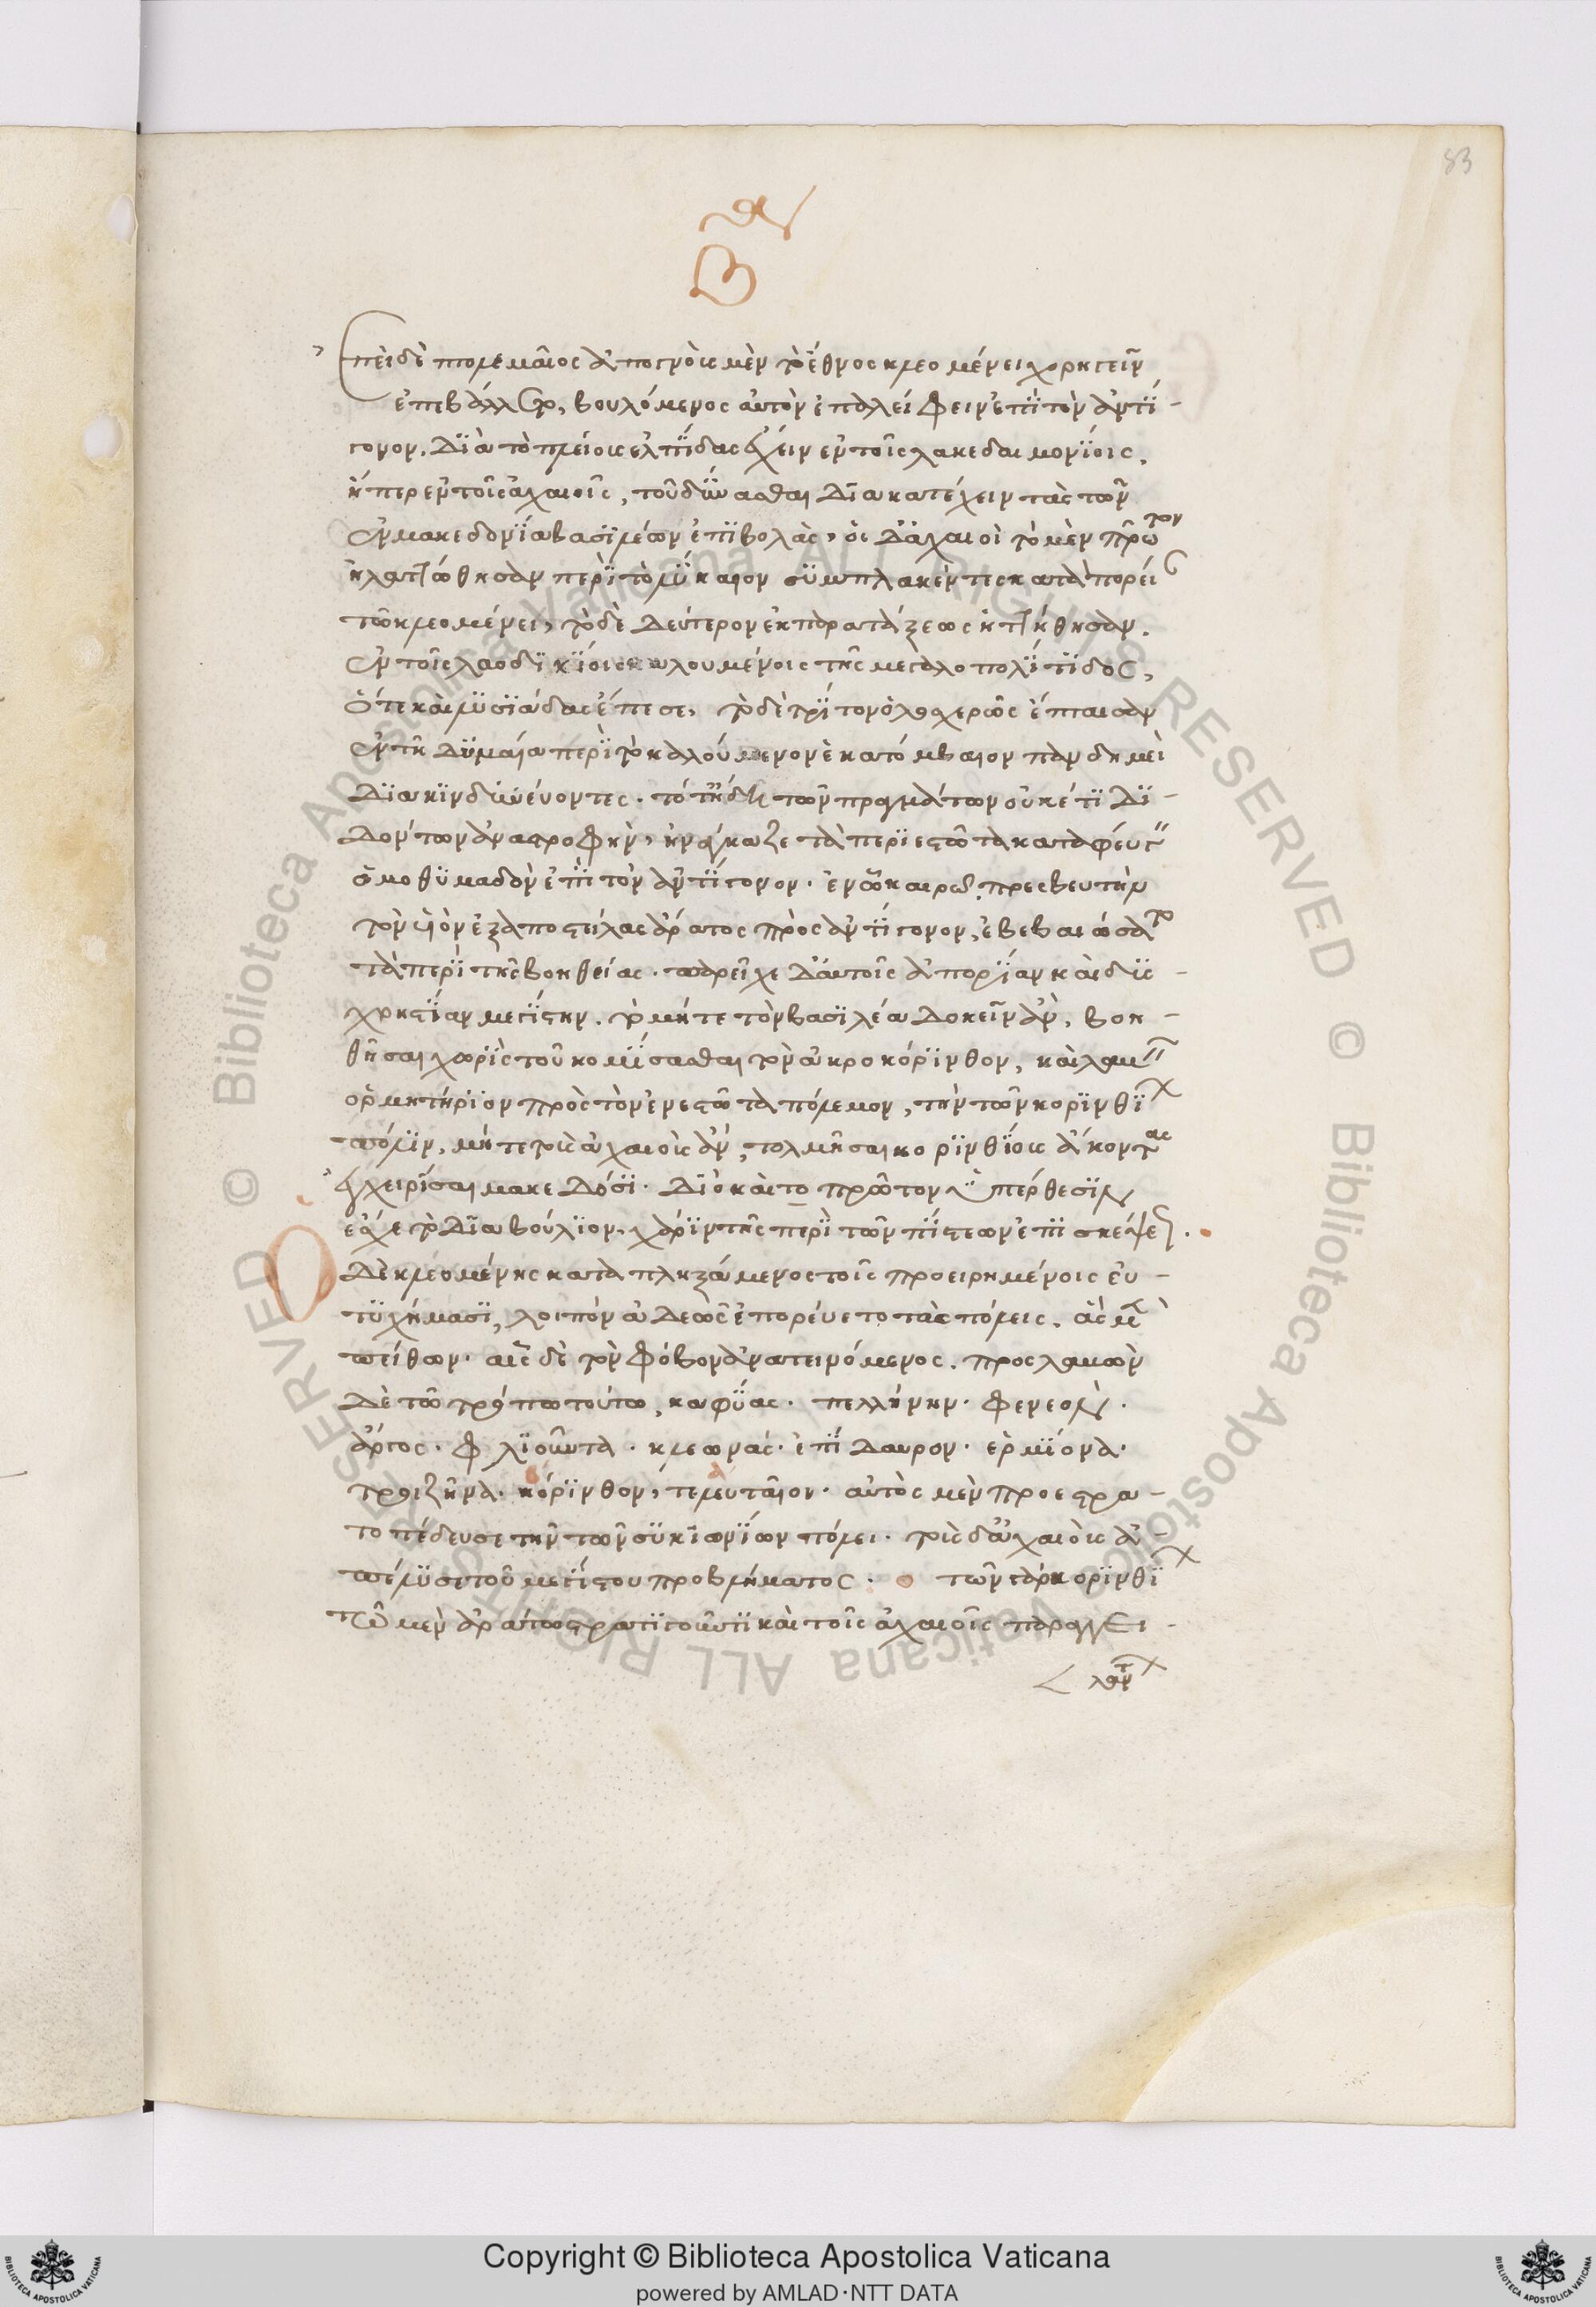 83
Β
Ἐπειδὴ πτολεμαῖος ἀπογνοὺς μὲν τὸ ἔθνος κλεομένει χορηγεῖν
ἐπεβάλλετο, βουλόμενος αὐτὸν ἐπαλείφειν ἐπὶ τὸν ἀντί-
γονον. διὰ τὸ πλείους ἐλπίδας ἔχειν ἐν τοῖς λακεδαιμονίοις,
ἤπερ ἐν τοῖς ἀχαιοῖς, τοῦ δύνασθαι διακατέχειν τὰς τῶν
ἐν μακεδονία βασιλέων ἐπιβολὰς, οἱ δ' ἀχαιοὶ τὸ μὲν πρῶτον
ἠλαττώθησαν περὶ τὸ λύκαιον συμπλακέντες κατὰ πορείαν
τῶ κλεομένει, τὸ δὲ δεύτερον ἐκ παρατάξεως ἡττήθησαν.
ἐν τοῖς λαοδικίοις καλουμένοις τῆς μεγαλοπολίτιδος,
ὅτε καὶ λυσιάδας ἔπεσε, τὸ δὲ τρίτον ὁλοσχερῶς ἔπταισαν
ἐν τῆ δυμαία περὶ τὸ καλούμενον ἑκατόμβαιον πανδημεὶ
διακινδυνεύοντες. τότ' ἤδη τῶν πραγμάτων οὐκέτι δι-
δόντων ἀναστροφὴν, ἠνάγκαζε τὰ περιεστῶτα καταφεύγειν
ὁμοθυμαδὸν ἐπὶ τὸν ἀντίγονον. ἐν ᾧ καιρῷ πρεσβευτὴν
τὸν υἱὸν ἐξαποστείλας ἄρατος πρὸς ἀντίγονον, ἐβεβαιώσατο
τὰ περὶ τῆς βοηθείας. παρεῖχε δ' αὐτοῖς ἀπορίαν καὶ δυσ-
χρηστίαν μεγίστην. τὸ μήτε τὸν βασιλέα δοκεῖν ἂν, βοη-
θῆσαι χωρὶς τοῦ κομίσασθαι τὸν ἀκροκόρινθον, καὶ λαβεῖν
ὁρμητήριον πρὸς τὸν ἐνεστῶτα πόλεμον, τὴν τῶν κορινθίων
πόλιν, μήτε τοὺς ἀχαιοὺς ἂν, τολμῆσαι κορινθίους ἄκοντας
ἐγχειρίσαι μακεδόσι. διὸ καὶ το πρῶτον ὑπέρθεσιν
ἔσχε τὸ διαβούλιον. χάριν τῆς περὶ τῶν πίστεων ἐπισκέψεως.
Ὁ δὲ κλεομένης καταπληξάμενος τοῖς προειρημένοις εὐ-
τυχήμασι, λοιπὸν ἀδεῶς ἐπορεύετο τὰς πόλεις. ἃς μὲν
πείθων. αἷς δὲ τὸν φόβον ἀνατεινόμενος. προσλαβὼν
δὲ τῶ τρόπω τούτω, καφύας. πελλήνην. φενεόν.
ἄργος. φλιοῦντα. κλεωνάς. ἐπίδαυρον. ἑρμιόνα.
τροιζῆνα. κόρινθον, τελευταῖον. αὐτὸς μὲν προεστρα-
τοπέδευσε τῆν τῶν σικυωνίων πόλει. τοὺς δ' ἀχαιοὺς ἀ-
πέλυσε τοῦ μεγίστου προβλήματος. τῶν γὰρ κορινθίων
τῶ μὲν ἀράτω στρατηγοῦντι καὶ τοῖς ἀχαιοῖς παραγγει-
λάντων
Copyright © Biblioteca Apostolica Vaticana
powered by AMLAD·NTT DATA